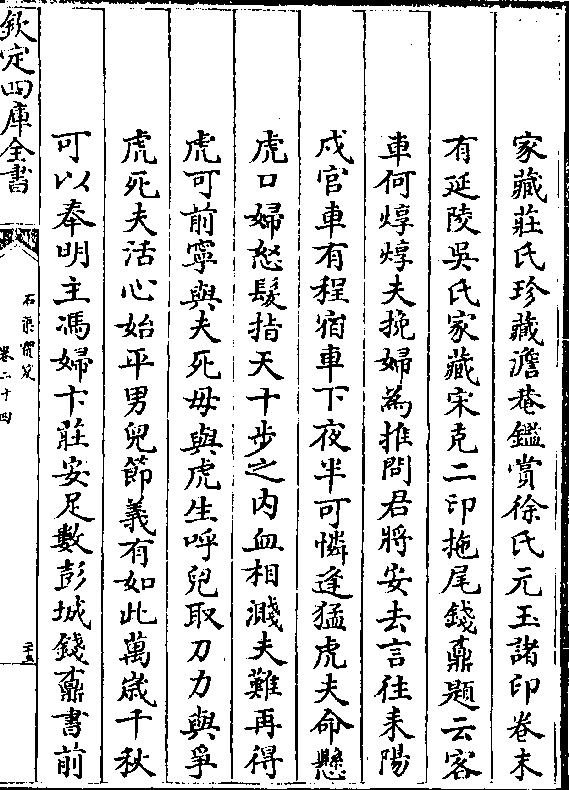 家藏莊氏珍藏澹菴鑑賞徐氏元玉諸印卷末
有延陵吳氏家藏宋克二印拖尾錢鼒題云客
車何焞焞夫挽婦為推問君將安去言往耒陽
戍官車有程宿車下夜半可憐逢猛虎夫命懸
虎口婦怒髮指天十步之内血相濺夫難再得
虎可前寧與夫死毋與虎生呼兒取刀力與爭
虎死夫活心始平男兒節義有如此萬歲千秋
可以奉明主馮婦卞莊安足數彭城錢鼒書前
欽定四庫全書
石渠寶笈
卷二十四
二十五